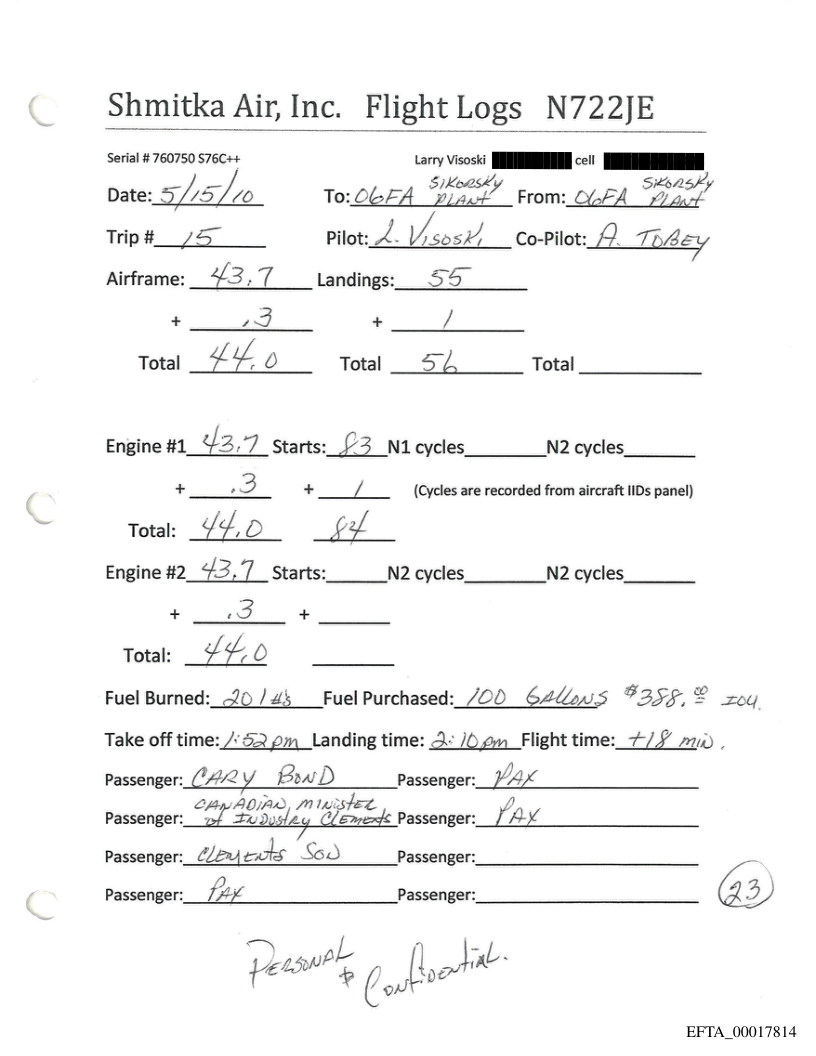 Shmitka Air, Inc. Flight Logs N722JE
Serial # 760750 S76C++ Larry Visoski cell
Date: 5/15/10 To: 06FA SIKORSKY PLANT From: 06FA SIKORSKY PLANT
Trip # 15 Pilot: L. VISOSKI Co-Pilot: A. TOBEY
Airframe: 43.7 Landings: 55
+ .3 + 1
Total 44.0 Total 56 Total
Engine #1 43.7 Starts: 83 N1 cycles N2 cycles
+ .3 + 1 (Cycles are recorded from aircraft IIDs panel)
Total: 44.0 84
Engine #2 43.7 Starts: N2 cycles N2 cycles
+ .3 +
Total: 44.0
Fuel Burned: 201 #s Fuel Purchased: 100 GALLONS $388.00 IOU.
Take off time: 1:52 pm Landing time: 2:10 pm Flight time: +18 min.
Passenger: CARY BOND Passenger: PAX
Passenger: CANADIAN, MINISTER of INDUSTRY CLEMENTS Passenger: PAX
Passenger: CLEMENTS SON Passenger:
Passenger: PAX Passenger:
23
PERSONAL & CONFIDENTIAL.
EFTA_00017814